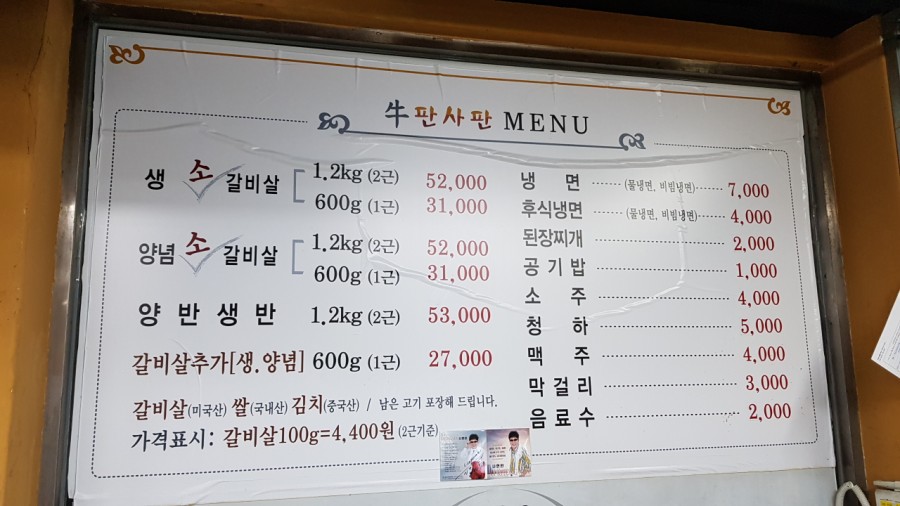 牛판사판 MENU
생 소 갈비살 1.2kg (2근) 52,000
600g (1근) 31,000
양념 소 갈비살 1.2kg (2근) 52,000
600g (1근) 31,000
양 반 생 반 1.2kg (2근) 53,000
갈비살추가[생.양념] 600g (1근) 27,000
갈비살(미국산) 쌀(국내산) 김치(중국산) / 남은 고기 포장해 드립니다.
가격표시: 갈비살100g=4,400원(2근기준)
냉 면 (물냉면, 비빔냉면) 7,000
후식냉면 (물냉면, 비빔냉면) 4,000
된장찌개 2,000
공 기 밥 1,000
소 주 4,000
청 하 5,000
맥 주 4,000
막 걸 리 3,000
음 료 수 2,000